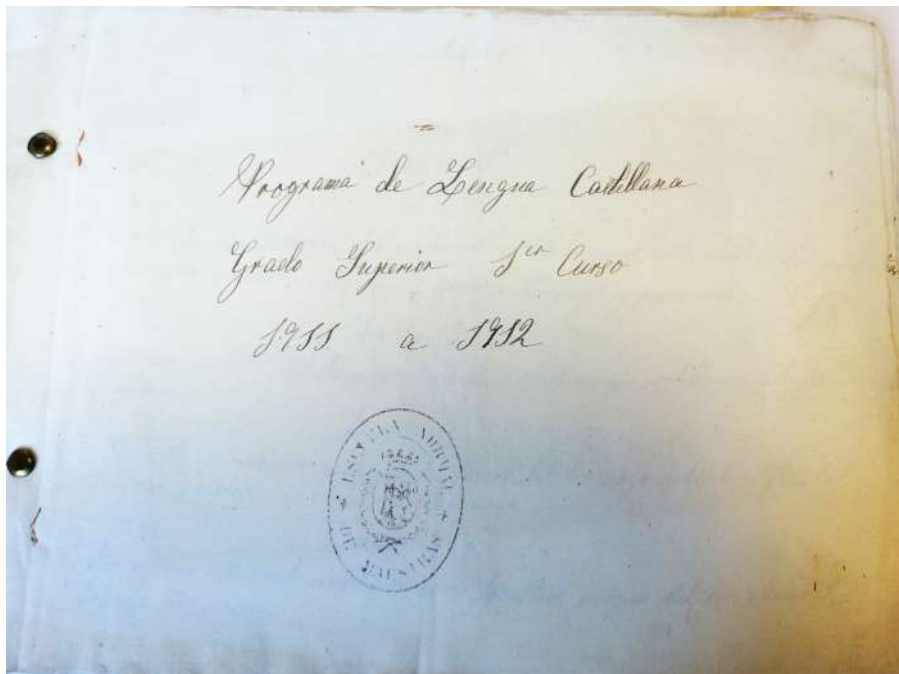 Programa de Lengua Castellana
Grado Superior 1er Curso
1911 a 1912
ESCUELA NORMAL
DE MAESTRAS